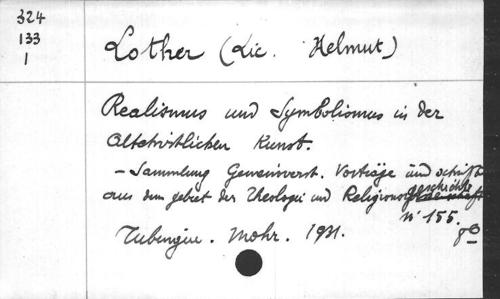 324
133
1
Lother (Lic. Helmut)
Realismus und Symbolismus in der
Altchristlichen Kunst.
- Sammlung Gemeinverst. Vorträge und Schrift
aus dem gebiet der Theologie und Religionsgeschichte
N° 155.
Tubingue. Mohr. 1931. 8°